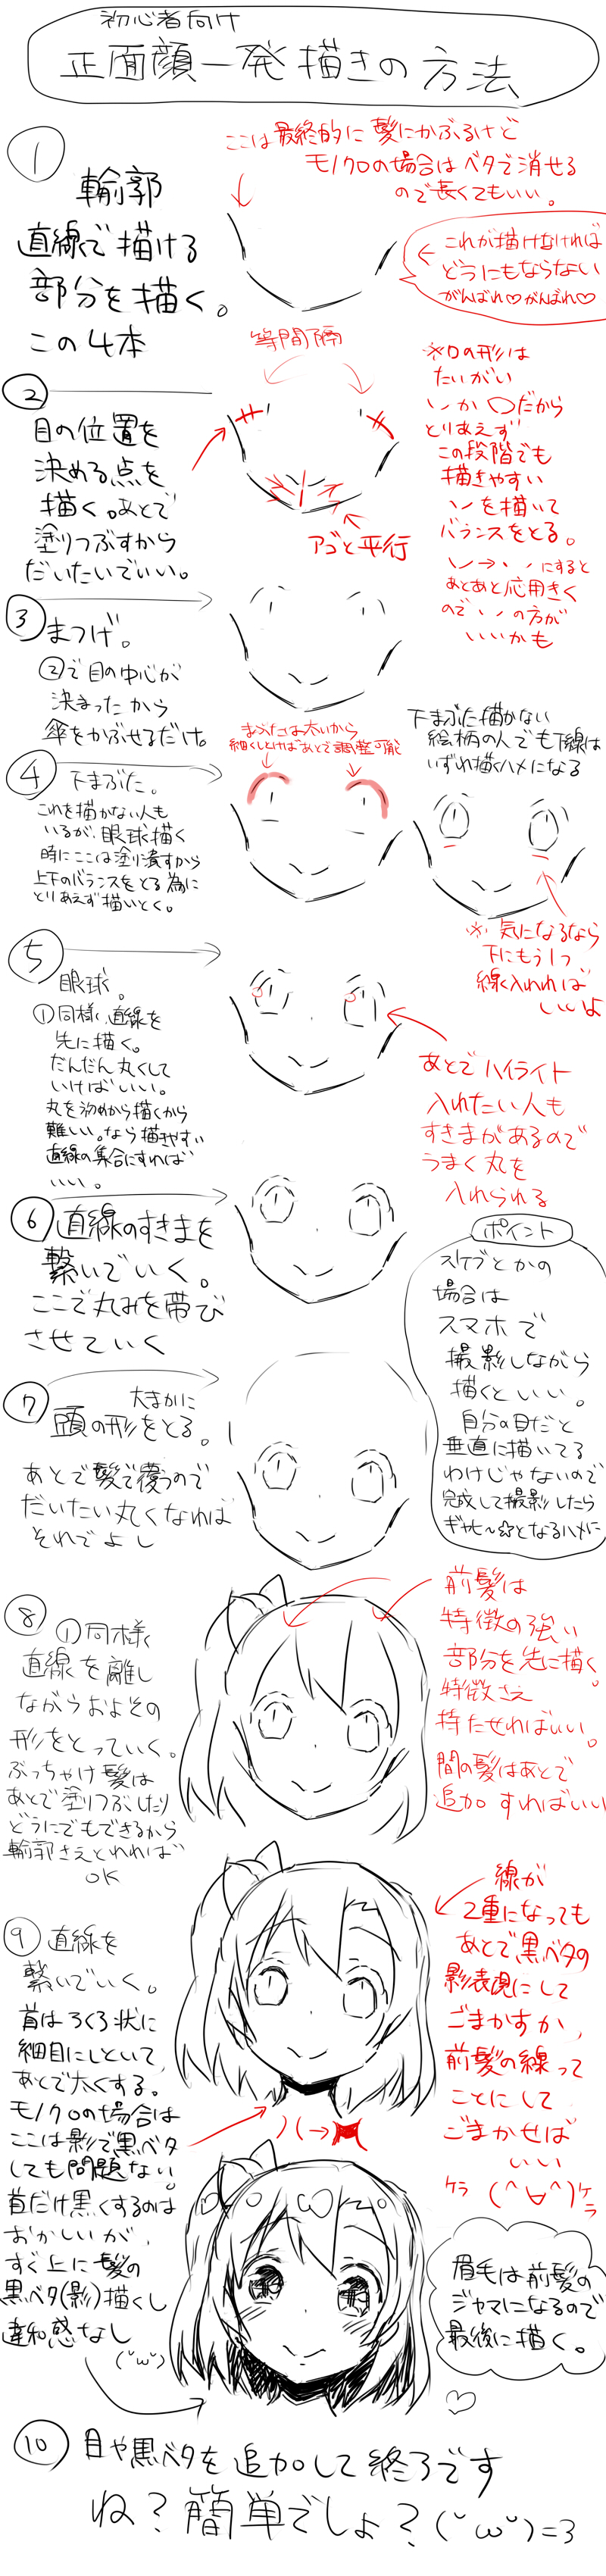 初心者向け
正面顔一発描きの方法
①
輪郭
直線で描ける
部分を描く。
この4本
ここは最終的に髪にかぶるけど
モノクロの場合はベタで消せる
ので長くてもいい。
← これが描けなければ
どうにもならない
がんばれ♡がんばれ♡
②
目の位置を
決める点を
描く。あとで
塗りつぶすから
だいたいでいい。
等間隔
アゴと平行
※口の形は
たいがい
か 〇だから
とりあえず
この段階でも
描きやすい
を描いて
バランスをとる。
→ にすると
あとあと応用きく
ので の方が
いいかも
③
まつげ。
②で目の中心が
決まったから
傘をかぶせるだけ。
④
下まぶた。
これを描かない人も
いるが、眼球描く
時にここは塗り潰すから
上下のバランスをとる為に
とりあえず描いとく。
まぶたは太いから
細くしとけばあとで調整可能
下まぶた描かない
絵柄の人でも下線は
いずれ描くハメになる
※気になるなら
下にもう1つ
線入れれば
いいよ
⑤
眼球。
①同様、直線を
先に描く。
だんだん丸くして
いけばいい。
丸を初めから描くから
難しい。なら描きやすい
直線の集合にすれば
いい。
あとでハイライト
入れたい人も
すきまがあるので
うまく丸を
入れられる
⑥
直線のすきまを
繋いでいく。
ここで丸みを帯び
させていく
ポイント
スケブとかの
場合は
スマホで
撮影しながら
描くといい。
自分の目だと
垂直に描いてる
わけじゃないので
完成して撮影したら
ギャヒ〜☆となるハメに
⑦
大まかに
頭の形をとる。
あとで髪で覆うので
だいたい丸くなれば
それでよし
⑧
①同様
直線を離し
ながらおよその
形をとっていく。
ぶっちゃけ髪は
あとで塗りつぶしたり
どうにでもできるから
輪郭さえとれれば
OK
前髪は
特徴の強い
部分を先に描く。
特徴さえ
持たせればいい。
間の髪はあとで
追加すればいい
⑨
直線を
繋いでいく。
首はろくろ状に
細目にしといて
あとで太くする。
モノクロの場合は
ここは影で黒ベタ
しても問題ない。
首だけ黒くするのは
おかしいが、
すぐ上に髪の
黒ベタ(影)描くし
違和感なし
(˘ω˘)
線が
2重になっても
あとで黒ベタの
影表現にして
ごまかすか、
前髪の線って
ことにして
ごまかせば
いい
ケラ(^∀^)ケラ
)(→
眉毛は前髪の
ジャマになるので
最後に描く。
⑩ 目や黒ベタを追加して終了です
ね?簡単でしょ?(˘ω˘)=3